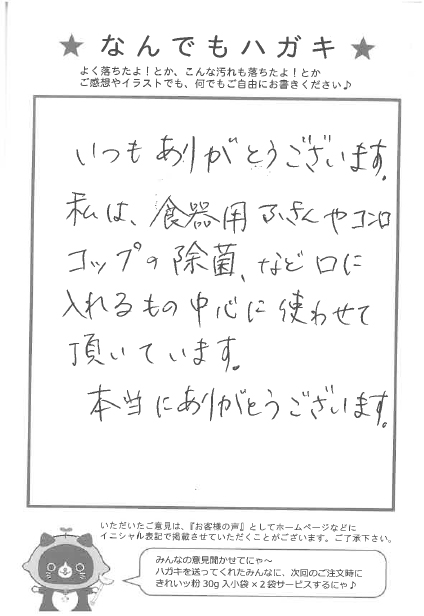 ★ なんでもハガキ ★
よく落ちたよ！とか、こんな汚れも落ちたよ！とか
ご感想やイラストでも、何でもご自由にお書きください♪
いつもありがとうございます。
私は、食器用ふきんやコンロ
コップの除菌、など口に
入れるもの中心に使わせて
頂いています。
本当にありがとうございます。
いただいたご意見は、『お客様の声』としてホームページなどに
イニシャル表記で掲載させていただくことがございます。ご了承下さい。
みんなの意見聞かせてにゃ～
ハガキを送ってくれたみんなに、次回のご注文時に
きれいッ粉 30g 入小袋 ×２袋サービスするにゃ♪